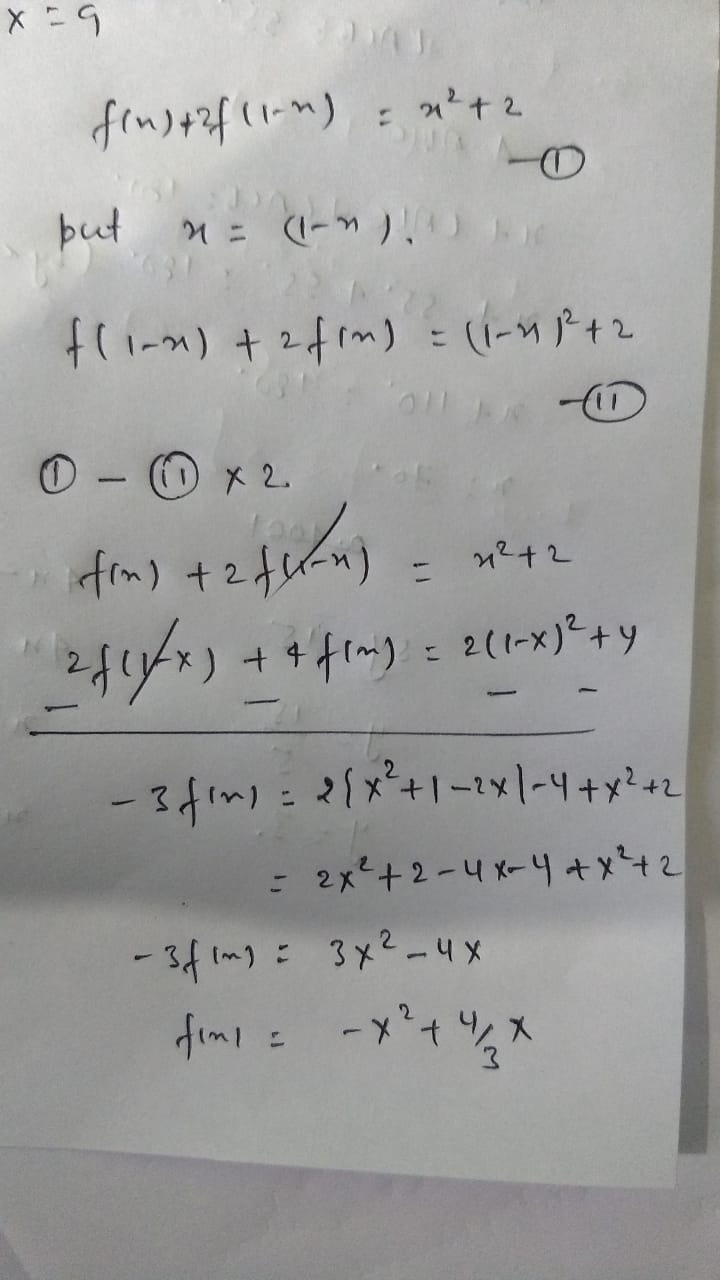 x = 9
f(x)+2f(1-x) = x²+2
—①
put x = (1-x).
f(1-x) + 2f(x) = (1-x)²+2
—⑪
① – ⑪ × 2.
f(x) + 2f(1-x) = x²+2
2f(1-x) + 4f(x) = 2(1-x)²+4
– – – –
-3f(x) = 2(x²+1-2x)-4+x²+2
= 2x²+2-4x-4+x²+2
-3f(x) = 3x²-4x
f(x) = -x²+4/3 x